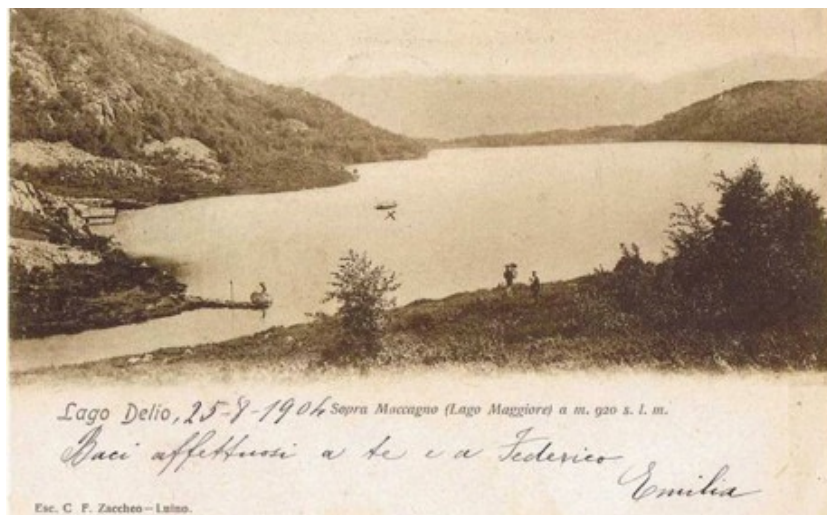 Lago Delio, 25-8-1904 Sopra Maccagno (Lago Maggiore) a m. 920 s. l. m.
Baci affettuosi a te e a Federico
Emilia
Esc. C. F. Zaccheo—Luino.